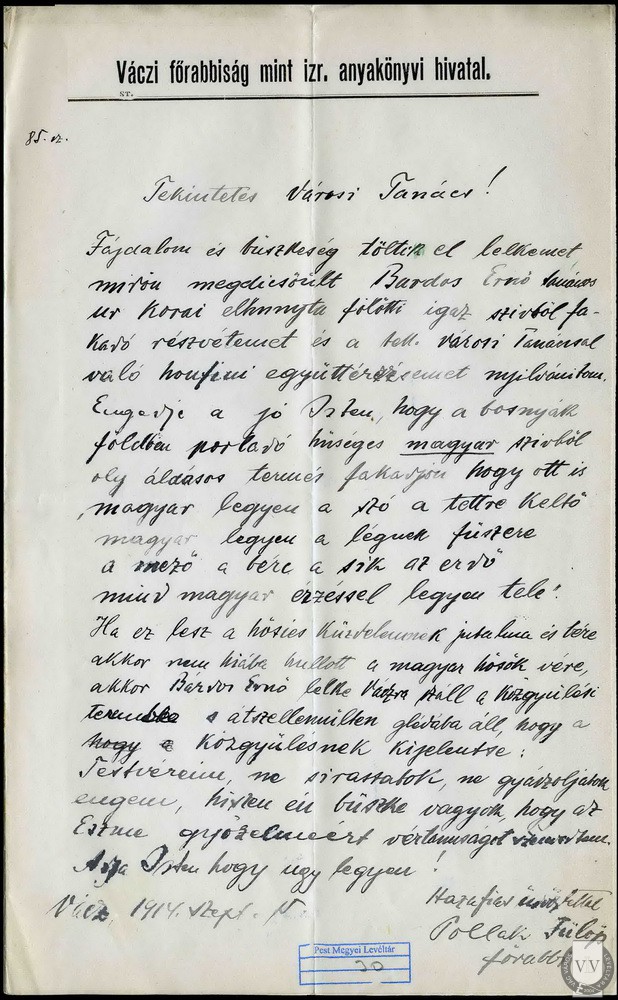 Váczi főrabbiság mint izr. anyakönyvi hivatal.
ST.
85. sz.
Tekintetes Városi Tanács!
Fájdalom és büszkeség töltik el lelkemet
midőn megdicsőült Bardos Ernő tanácsos
ur korai elhunyta fölötti igaz szivből fa-
kadó részvétemet és a tek. városi Tanácsal
való honfiui együttérzésemet nyilvánitom.
Engedje a jó Isten, hogy a bosnyák
földben porladó hűséges magyar szivből
oly áldásos termés fakadjon hogy ott is
„magyar legyen a szó a tettre keltő
magyar legyen a légnek fűszere
a mező a bérc a sik az erdő
mind magyar érzéssel legyen tele".
Ha ez lesz a hősies küzdelemnek jutalma és bére
akkor nem hiába hullott a magyar hősök vére,
akkor Bárdos Ernő lelke Váczra száll a közgyülési
terembe s átszellemülten glédába áll, hogy a
hogy a közgyülésnek kijelentse:
Testvéreim, ne sirassatok, ne gyászoljatok
engem, hiszen én büszke vagyok, hogy az
Eszme győzelméért vértanuságot szenvedtem.
Adja Isten hogy ugy legyen!
Vácz, 1914. szept.
Hazafias üdvözlettel
Pollák Fülöp
főrabbi
Pest Megyei Levéltár
20
VV